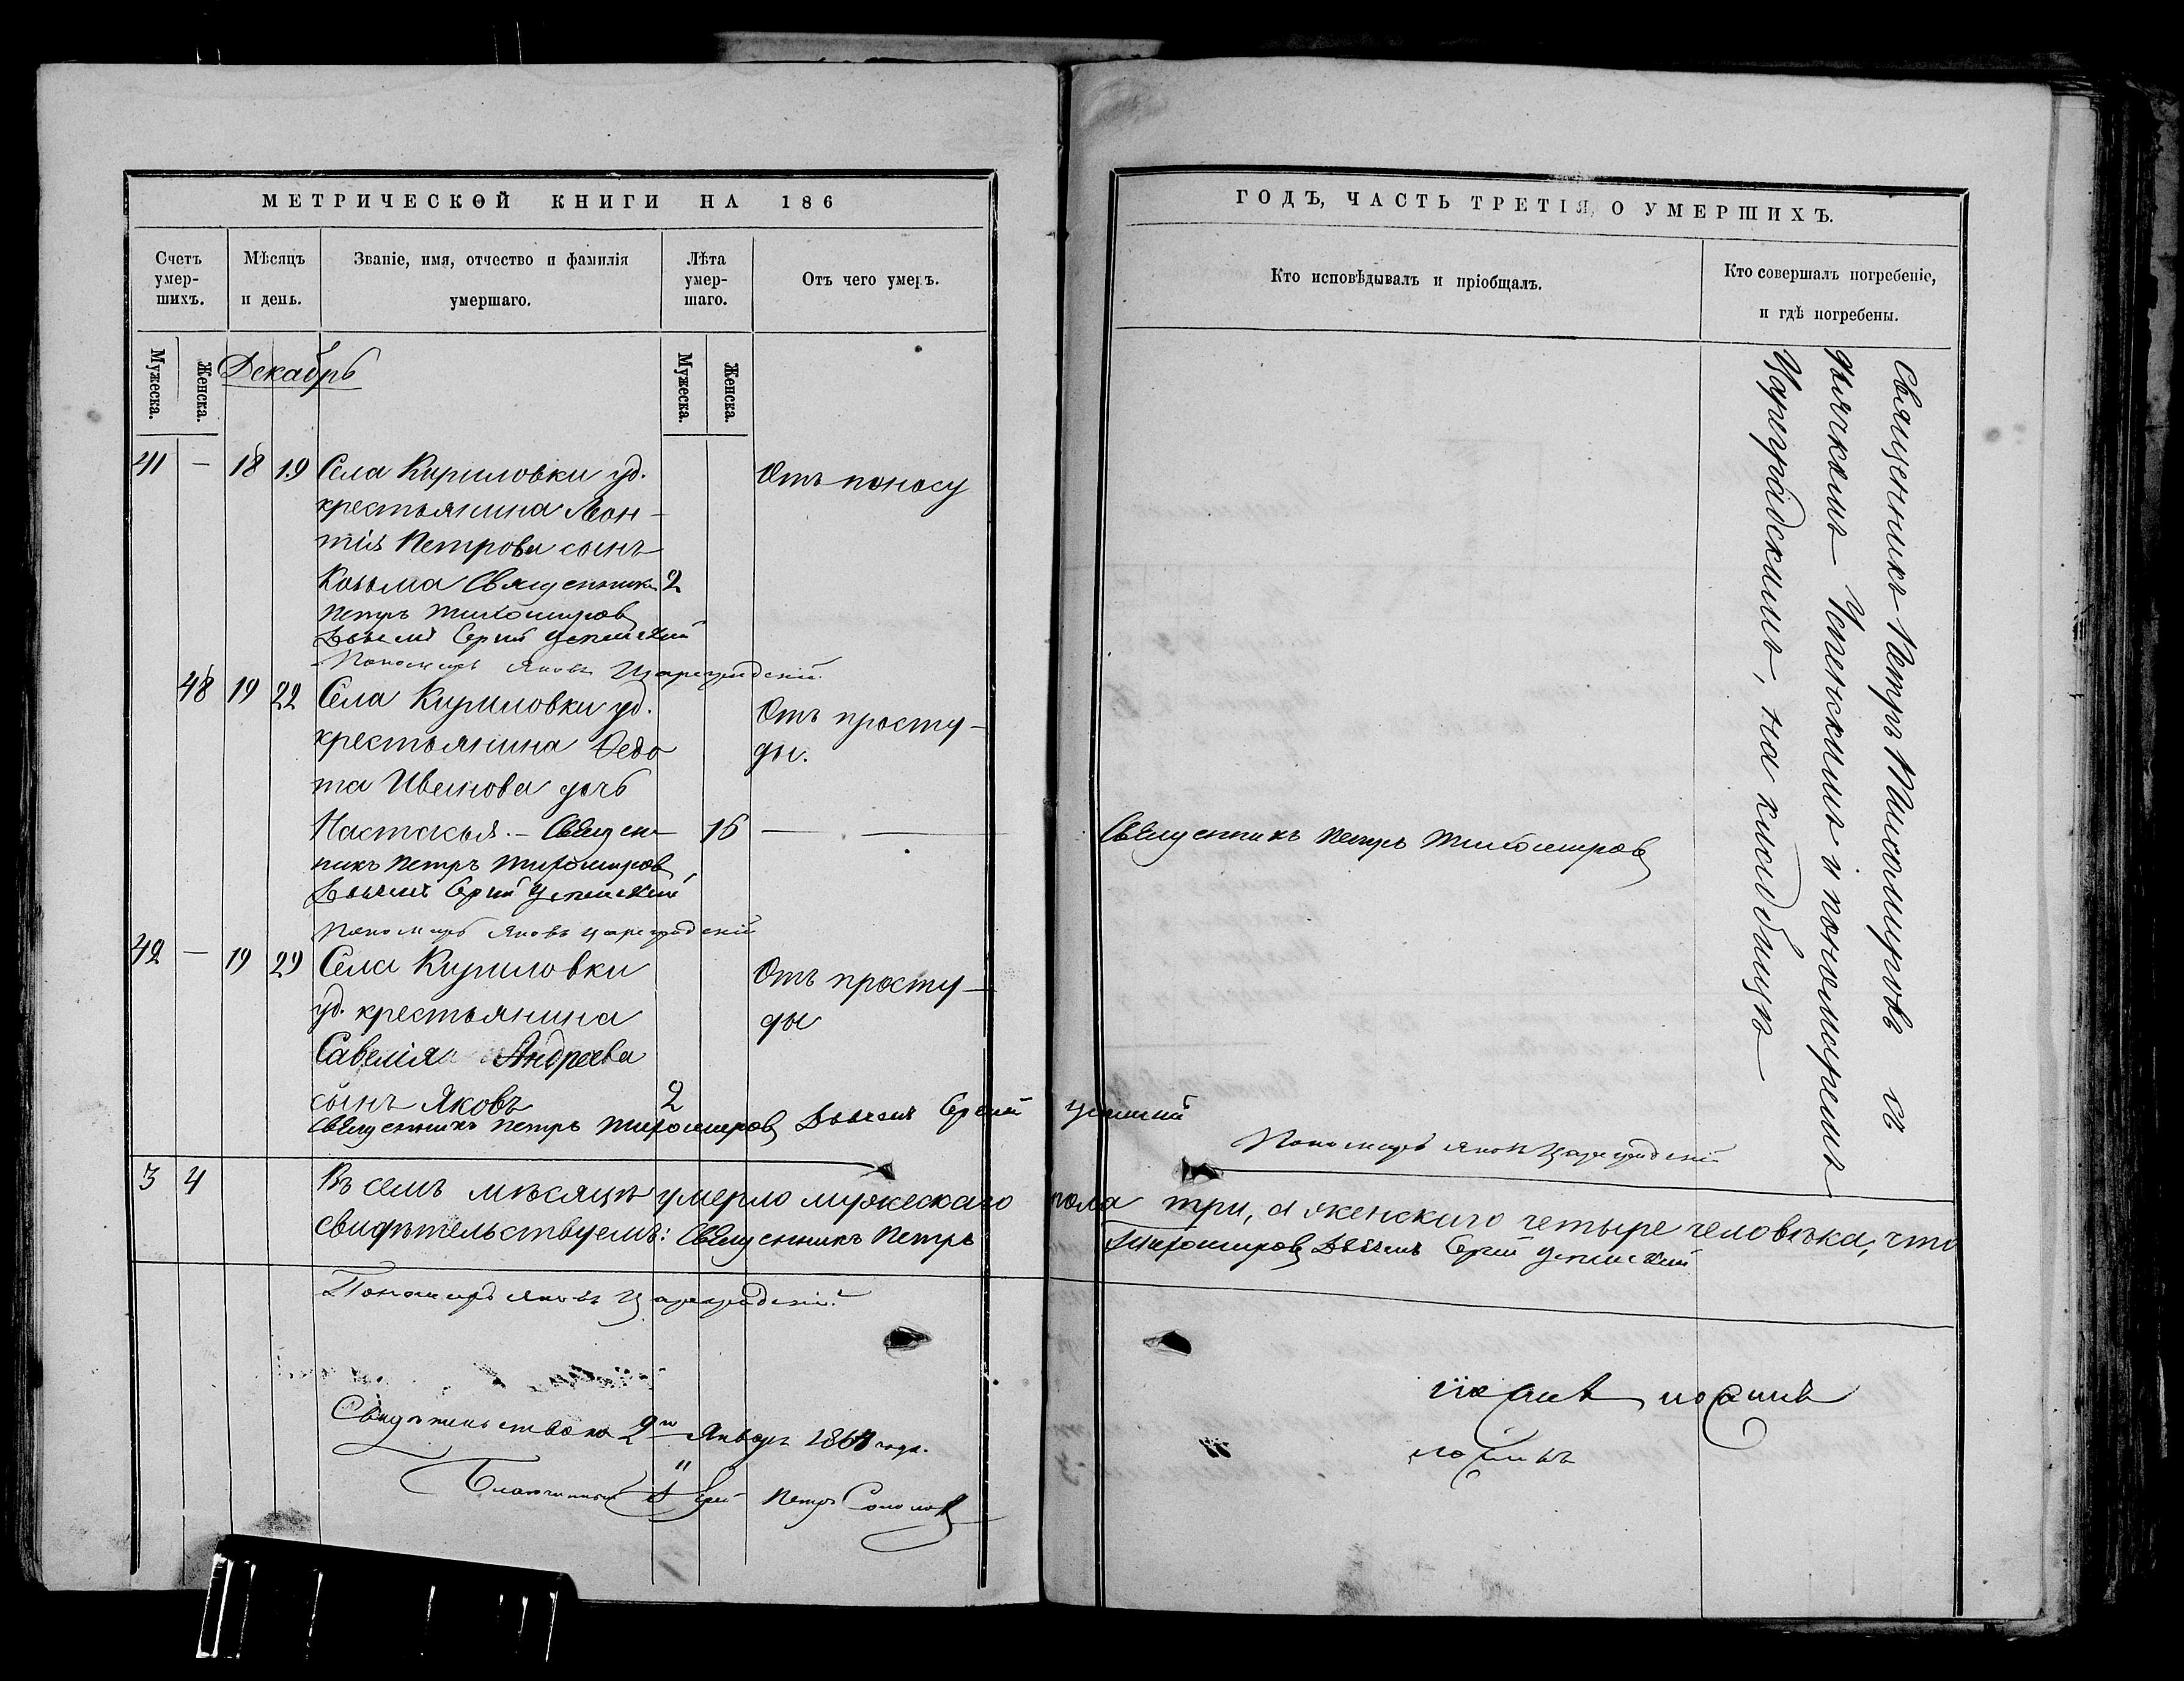 МЕТРИЧЕСКОЙ КНИГИ НА 186
Счетъ умер-шихъ.
Мѣсяцъ и день.
Званіе, имя, отчество и фамилія умершаго.
Лѣта умер-шаго.
Отъ чего умеръ.
Мужеска.
Женска.
Мужеска.
Женска.
Декабрь
41 — 18 19 Села Кириловки уд. Отъ поносу
крестьянина Леон-
тія Петрова сынъ
Козьма Священникъ 2
Петръ Тихомировъ
Дьячекъ Сергій Успенскій
Пономарь Яковъ Цареградскій
48 19 22 Села Кириловки уд. Отъ просту-
крестьянина Ѳедо ды.
та Иванова дочь
Настасья. – Священ- 16 —
никъ Петръ Тихомировъ
Дьячекъ Сергій Успенскій
Пономарь Яковъ Цареградскій
42 — 19 29 Села Кириловки Отъ просту-
уд. крестьянина ды
Савелія Андреева
сынъ Яковъ 2
Священникъ Петръ Тихомировъ Дьячекъ Сергій Успенскій
Пономарь Яковъ Цареградскій
3 4 Въ семъ мѣсяцѣ умерло мужескаго пола три, а женскаго четыре человѣка, что
свидѣтельствуемъ: Священникъ Петръ Тихомировъ Дьячекъ Сергій Успенскій
Пономарь Яковъ Цареградскій
Свидѣтельствовано 2го Января 1864 года.
Благочинный Іерей Петръ Соколовъ
ГОДЪ, ЧАСТЬ ТРЕТІЯ, О УМЕРШИХЪ.
Кто исповѣдывалъ и пріобщалъ.
Кто совершалъ погребеніе, и гдѣ погребены.
Священникъ Петръ Тихомировъ
Священникъ Петръ Тихомировъ съ
дьячкомъ Успенскимъ и пономаремъ
Цареградскимъ, на кладбищѣ